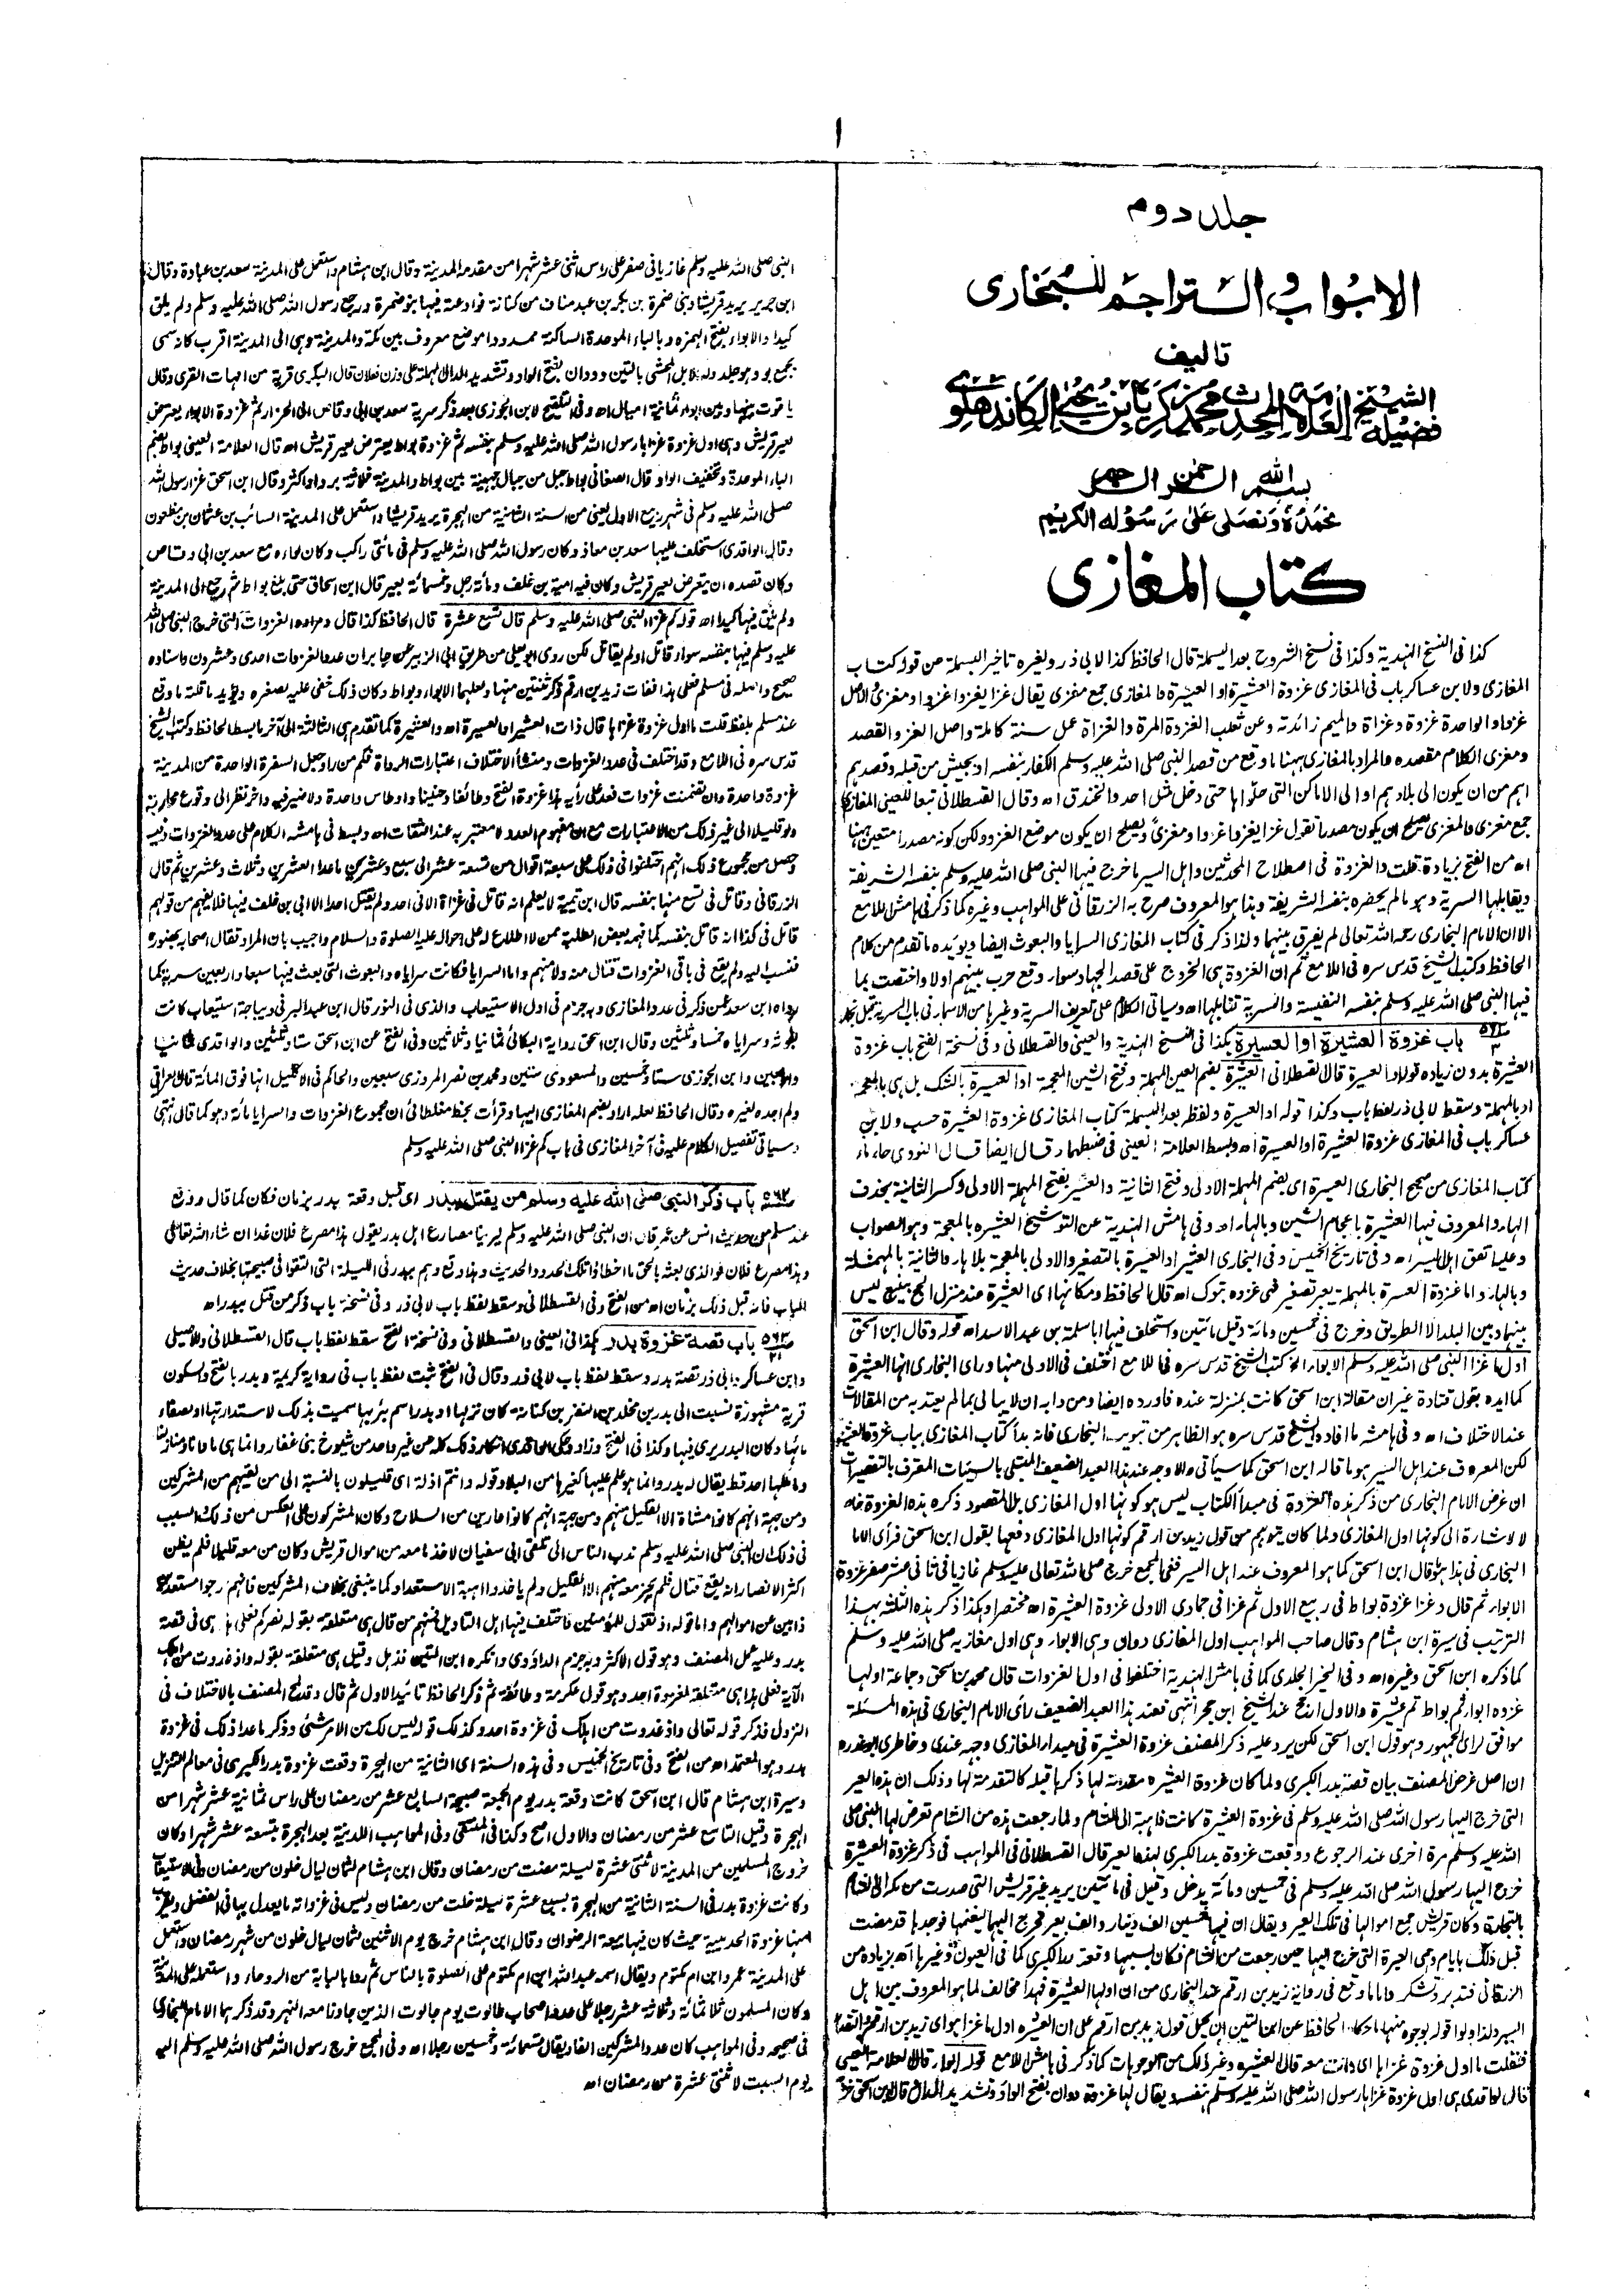 ١
جلد دوم
الابواب والتراجم للبخاری
تالیف
فضیلة الشیخ العلامة المحدث محمد زکریا بن یحیی الکاندهلوی
بسم الله الرحمن الرحیم
نحمده ونصلی علی رسوله الکریم
کتاب المغازی
کذا فی النسخ الهندیة وکذا فی نسخ الشروح بعد البسملة قال الحافظ کذا لابی ذر ولغیره تاخیر البسملة من قوله کتاب
المغازی ولابن عساکر باب فی المغازی غزوة العشیرة او العسیرة والمغازی جمع مغزی یقال غزا یغزو غزوا ومغزی والاصل
غزوا والواحدة غزوة وغزاة والمیم زائدة وعن ثعلب الغزوة المرة والغزاة عمل سنة کاملة واصل الغزو القصد
ومغزی الکلام مقصده والمراد بالمغازی ههنا ما وقع من قصد النبی صلی الله علیه وسلم الکفار بنفسه او بجیش من قبله وقصدهم
اعم من ان یکون الی بلادهم او الی الاماکن التی حلوا بها حتی دخل مثل احد والخندق اه وقال القسطلانی تبعا للعینی المغازی
جمع مغزی والمغزی یصلح ان یکون مصدرا تقول غزا یغزو غزوا ومغزی ویصلح ان یکون موضع الغزو ولکن کونه مصدرا متعین ههنا
اه من الفتح بزیادة قلت والغزوة فی اصطلاح المحدثین واهل السیر ما خرج فیها النبی صلی الله علیه وسلم بنفسه الشریفة
ویقابلها السریة وهو ما لم یحضره بنفسه الشریفة وهذا هو المعروف صرح به الزرقانی علی المواهب وغیره کما ذکر فی هامش اللامع
الا ان الامام البخاری رحمه الله تعالی لم یفرق بینهما ولذا ذکر فی کتاب المغازی السرایا والبعوث ایضا ویؤیده ما تقدم من کلام
الحافظ وکتب الشیخ قدس سره فی اللامع ثم ان الغزوة هی الخروج علی قصد الجهاد سواء وقع حرب بینهم اولا واختصت بما
فیها النبی صلی الله علیه وسلم بنفسه النفیسة والسریة تقابلها اه وسیاتی الکلام علی تعریف السریة وغیرها من الاسماء فی باب السریة قبل نجد
باب غزوة العشیرة او العسیرة هکذا فی النسخ الهندیة والعینی والقسطلانی وفی نسخة الفتح باب غزوة
العشیرة بدون زیادة قوله او العسیرة قال القسطلانی العشیرة بضم العین المهملة وفتح الشین المعجمة او العسیرة بالشک بل هی بالمعجمة
او بالمهملة وسقط لابی ذر لفظ باب وکذا قوله او العسیرة ولفظ بعد البسملة کتاب المغازی غزوة العشیرة حسب ولابن
عساکر باب فی المغازی غزوة العشیرة او العسیرة اه وبسط العلامة العینی فی ضبطها وقال ایضا قال النووی جاء فی
کتاب المغازی من صحیح البخاری العسیرة ای بضم المهملة الاولی وفتح الثانیة والعسیر بفتح المهملة الاولی وکسر الثانیة بحذف
الهاء والمعروف فیها العشیرة باعجام الشین وبالهاء اه وفی هامش الهندیة عن التوشیح العشیرة بالمعجمة وهو الصواب
وعلیه اتفق اهل السیر اه وفی تاریخ الخمیس وفی البخاری العشیر او العسیرة بالتصغیر والاولی بالمعجمة بلا هاء والثانیة بالمهملة
وبالهاء واما غزوة العسرة بالمهملة بغیر تصغیر فهی غزوة تبوک اه قال الحافظ ومکانها ای العشیرة عند منزل الحج بینبع لیس
بینها وبین البلد الا الطریق وخرج فی خمسین ومائة وقیل مائتین واستخلف فیها ابا سلمة بن عبد الاسد اه قوله وقال ابن اسحق
اول ما غزا النبی صلی الله علیه وسلم الابواء الخ کتب الشیخ قدس سره فی اللامع اختلف فی الاولی منها ورای البخاری انها العشیرة
کما ایده بقول قتادة غیر ان مقالة ابن اسحق کانت بمنزلة عنده فاورده ایضا ومن دابه ان لا یبالی بما لم یعتد به من المقالات
عند الاختلاف اه وفی هامشه ما افاده الشیخ قدس سره هو الظاهر من تبویب البخاری فانه بدأ کتاب المغازی بباب غزوة العشیرة
لکن المعروف عند اهل السیر هو ما قاله ابن اسحق کما سیأتی والاوجه عند هذا العبد الضعیف المبتلی بالسیئات المعترف بالتقصیرات
ان غرض الامام البخاری من ذکر هذه الغزوة فی مبدأ الکتاب لیس هو کونها اول المغازی بل المقصود ذکره هذه الغزوة خاصة
لا لاشارة الی کونها اول المغازی ولما کان یتوهم من قول زید بن ارقم کونها اول المغازی دفعها بقول ابن اسحق فرأی الامام
البخاری فی هذا هو قال ابن اسحق کما هو المعروف عند اهل السیر ففی المجمع خرج صلی الله تعالی علیه وسلم غازیا فی ثانی عشر صفر غزوة
الابواء ثم قال وغزا غزوة بواط فی ربیع الاول ثم غزا فی جمادی الاولی غزوة العشیرة اه مختصرا وهکذا ذکر هذه الثلثة بهذا
الترتیب فی سیرة ابن هشام وقال صاحب المواهب اول المغازی ودان وهی الابواء وهی اول مغازیه صلی الله علیه وسلم
کما ذکره ابن اسحق وغیره اه وفی الخیر الجاری کما فی هامش الهندیة اختلفوا فی اول الغزوات قال محمد بن اسحق وجماعة اولها
غزوة ابواء ثم بواط ثم عشیرة والاول ارجح عند الشیخ ابن حجر انتهی فعند هذا العبد الضعیف رأی الامام البخاری فی هذه المسئلة
موافق لرای الجمهور وهو قول ابن اسحق لکن یرد علیه ذکر المصنف غزوة العشیرة فی مبدأ المغازی وجه عندی
ان اصل غرض المصنف بیان قصة بدر الکبری ولما کان غزوة العشیرة مقدمة لها ذکرها قبله کالتقدمة لها وذلک ان هذه العیر
التی خرج الیها رسول الله صلی الله علیه وسلم فی غزوة العشیرة کانت ذاهبة الی الشام ولما رجعت هذه من الشام تعرض لها النبی صلی
الله علیه وسلم مرة اخری عند الرجوع ووقعت غزوة بدر الکبری لهذا العیر قال القسطلانی فی المواهب فی ذکر غزوة العشیرة
خرج الیها رسول الله صلی الله علیه وسلم فی خمسین ومائة رجل وقیل فی مائتین یرید عیر قریش التی صدرت من مکة الی الشام
بالتجارة وکان قریش جمع اموالها فی تلک العیر ویقال ان فیها خمسین الف دینار والف بعیر فخرج الیها لیغنمها فوجدها قد مضت
قبل ذلک بایام وهی العیر التی خرج الیها حین رجعت من الشام فکان بسببها وقعة بدر الکبری کما فی العیون وغیرها اه بزیادة من
الزرقانی فتدبر وتشکر واما ما وقع فی روایة زید بن ارقم عند البخاری من ان اولها العشیرة فهذا مخالف لما هو المعروف بین اهل
السیر ولذا اولوا قوله بوجوه منها ما حکاه الحافظ عن ابن التین ان یحمل قول زید بن ارقم علی ان العشیرة اول ما غزا هو ای زید بن ارقم
فقلت ما اول غزوة غزاها ای وانت معه قال العشیرة وغیر ذلک من التوجیهات کما ذکر فی هامش اللامع قوله ابواء قال العلامة العینی
قال الواقدی هی اول غزوة غزاها رسول الله صلی الله علیه وسلم بنفسه ویقال لها غزوة ودان بفتح الواو وتشدید الدال قال ابن اسحق خرج
النبی صلی الله علیه وسلم غازیا فی صفر علی راس اثنی عشر شهرا من مقدمه المدینة وقال ابن هشام واستعمل علی المدینة سعد بن عبادة وقال
ابن جریر یرید قریشا وبنی ضمرة بن بکر بن عبد مناف من کنانة فوادعته فیها بنو ضمرة ورجع رسول الله صلی الله علیه وسلم ولم یلق
کیدا والابواء بفتح الهمزة وبالباء الموحدة الساکنة ممدودا موضع معروف بین مکة والمدینة وهی الی المدینة اقرب کانه سمی
بجمع بو وهو جلد ولد الابل المحشی بالتبن وودان بفتح الواو وتشدید الدال المهملة علی وزن فعلان قال البکری قریة من امهات القری وقال
یاقوت بینها وبین ابواء ثمانیة امیال اه وفی التلقیح لابن الجوزی بعد ذکر سریة سعد بن ابی وقاص الی الخرار ثم غزوة الابواء یعترض
لعیر قریش وهی اول غزوة غزاها رسول الله صلی الله علیه وسلم بنفسه ثم غزوة بواط یعترض عیر قریش اه قال العلامة العینی بواط بضم
الباء الموحدة وتخفیف الواو قال الصغانی بواط جبل من جبال جهینة بین بواط والمدینة ثلاثة برد او اکثر وقال ابن اسحق غزا رسول الله
صلی الله علیه وسلم فی شهر ربیع الاول یعنی من السنة الثانیة من الهجرة یرید قریشا واستعمل علی المدینة السائب بن عثمان بن مظعون
وقال الواقدی استخلف علیها سعد بن معاذ وکان رسول الله صلی الله علیه وسلم فی مائتی راکب وکان لواءه مع سعد بن ابی وقاص
وکان قصده ان یتعرض لعیر قریش وکان فیه امیة بن خلف ومائة رجل وخمسمائة بعیر قال ابن اسحاق حتی بلغ بواط ثم رجع الی المدینة
ولم یلق فیها کیدا اه قوله کم غزا النبی صلی الله علیه وسلم قال تسع عشرة قال الحافظ کذا قال ومراده الغزوات التی خرج النبی صلی الله
علیه وسلم فیها بنفسه سواء قاتل او لم یقاتل لکن روی ابو یعلی من طریق ابی الزبیر عن جابر ان عدد الغزوات احدی وعشرون واسناده
صحیح واصله فی مسلم فعلی هذا ففات زید بن ارقم ذکر ثنتین منها ولعلهما الابواء وبواط وکان ذلک خفی علیه لصغره ویؤید ما قلته ما وقع
عند مسلم بلفظ قلت ما اول غزوة غزاها قال ذات العشیر او العسیرة اه والعشیرة کما تقدم هی الثالثة الی آخر ما بسط الحافظ وکتب الشیخ
قدس سره فی اللامع وقد اختلف فی عدد الغزوات ومنشأ الاختلاف اعتبارات الرواة فکم من راو جعل السفرة الواحدة من المدینة
غزوة واحدة وان تضمنت غزوات فعد علی رأیه هذا غزوة الفتح وطائفا وحنینا واوطاس واحدة ولا ضیر فیه وآخر نظر الی وقوع محاربة
ولو قلیلا الی غیر ذلک من الاعتبارات مع ان مفهوم العدد لا معتبر به عند الثقات اه وبسط فی هامشه الکلام علی عدد الغزوات وفیه
وحصل من مجموع ذلک انهم اختلفوا فی ذلک علی سبعة اقوال من تسعة عشر الی سبع وعشرین ما عدا العشرین وثلاث وعشرین ثم قال
الزرقانی وقاتل فی تسع منها بنفسه قال ابن تیمیة لا یعلم انه قاتل فی غزاة الا فی احد ولم یقتل احدا الا ابی بن خلف فیها فلا یفهم من قولهم
قاتل فی کذا انه قاتل بنفسه کما فهمه بعض الطلبة ممن لا اطلاع له علی احواله علیه الصلوة والسلام واجیب بان المراد قتال اصحابه بحضوره
فنسب الیه ولم یقع فی باقی الغزوات قتال منه ولا منهم واما السرایا فکانت سرایاه والبعوث التی بعث فیها سبعا واربعین سریة کما
رواه ابن سعد عمن ذکر فی عدد المغازی وبه جزم فی اول الاستیعاب والذی فی النور قال ابن عبد البر فی دیباجة استیعاب کانت
بعوثه وسرایاه خمسا وثلثین وقال ابن اسحق روایة البکائی ثمانیا وثلاثین وفی الفتح عن ابن اسحق ستا وثلثین والواقدی ثمانیا
واربعین وابن الجوزی ستا وخمسین والمسعودی ستین ومحمد بن نصر المروزی سبعین والحاکم فی الاکلیل انها فوق المائة قال العراقی
ولم اجده لغیره وقال الحافظ لعله اراد بضم المغازی الیها وقرأت بخط مغلطائی ان مجموع الغزوات والسرایا مائة وهو کما قال انتهی
وسیاتی تفصیل الکلام علیه فی آخر المغازی فی باب کم غزا النبی صلی الله علیه وسلم
باب ذکر النبی صلی الله علیه وسلم من یقتل ببدر ای قبل وقعة بدر بزمان فکان کما قال ووقع
عند مسلم من حدیث انس عن عمر قال ان النبی صلی الله علیه وسلم لیرینا مصارع اهل بدر یقول هذا مصرع فلان غدا ان شاء الله تعالی
وهذا مصرع فلان فوالذی بعثه بالحق ما اخطأوا تلک الحدود الحدیث وهذا وقع وهم ببدر فی اللیلة التی التقوا فی صبیحتها بخلاف حدیث
الباب فانه قبل ذلک بزمان اه من الفتح وفی القسطلانی وسقط لفظ باب لابی ذر وفی نسخة باب ذکر من قتل ببدر اه
باب قصة غزوة بدر هکذا فی العینی والقسطلانی وفی نسخة الفتح سقط لفظ باب قال القسطلانی وللاصیلی
وابن عساکر وابی ذر قصة بدر وسقط لفظ باب لابی ذر وقال فی الفتح ثبت لفظ باب فی روایة کریمة وبدر بالفتح والسکون
قریة مشهورة نسبت الی بدر بن مخلد بن النضر بن کنانة کان نزلها او بدر اسم بئر بها سمیت بذلک لاستدارتها او لصفاء
مائها وکان البدر یری فیها وکذا فی الفتح وزاد وحکی الواقدی انکار ذلک کله من غیر واحد من شیوخ بنی غفار وانما هی ماؤنا ومنازلنا
وما ملکها احد قط یقال له بدر وانما هو علم علیها کغیرها من البلاد وقوله وانتم اذلة ای قلیلون بالنسبة الی من لقیهم من المشرکین
ومن جهة انهم کانوا مشاة الا القلیل منهم ومن جهة انهم کانوا عارین من السلاح وکان المشرکون علی العکس من ذلک والسبب
فی ذلک ان النبی صلی الله علیه وسلم ندب الناس الی تلقی ابی سفیان لاخذ ما معه من اموال قریش وکان من معه قلیلا فلم یظن
اکثر الانصار انه یقع قتال فلم یخرج معه منهم الا القلیل ولم یاخذوا اهبة الاستعداد کما ینبغی بخلاف المشرکین فانهم خرجوا مستعدین
ذابین عن اموالهم واما قوله اذ تقول للمؤمنین فاختلف فیها اهل التاویل فمنهم من قال هی متعلقة بقوله نصرکم فعلی هذا هی فی قصة
بدر وعلیه عمل المصنف وهو قول الاکثر وبه جزم الداؤدی وانکره ابن التین فذهل وقیل هی متعلقة بقوله واذ غدوت من اهلک
الآیة فعلی هذا هی متعلقة بغزوة احد وهو قول عکرمة وطائفة ثم ذکر الحافظ تائید الاول ثم قال وقد لمح المصنف بالاختلاف فی
النزول فذکر قوله تعالی واذ غدوت من اهلک فی غزوة احد وکذلک قوله لیس لک من الامر شئ وذکر ما عدا ذلک فی غزوة
بدر وهو المعتمد اه من الفتح وفی تاریخ الخمیس وفی هذه السنة ای الثانیة من الهجرة وقعت غزوة بدر الکبری فی معالم التنزیل
وسیرة ابن هشام قال ابن اسحق کانت وقعة بدر یوم الجمعة صبیحة السابع عشر من رمضان علی راس ثمانیة عشر شهرا من
الهجرة وقیل التاسع عشر من رمضان والاول اصح وکذا فی المنتقی وفی المواهب اللدنیة بعد الهجرة بتسعة عشر شهرا وکان
خروج المسلمین من المدینة لاثنتی عشرة لیلة مضت من رمضان وقال ابن هشام لثمان لیال خلون من رمضان وفی الاستیعاب
وکانت غزوة بدر فی السنة الثانیة من الهجرة بسبع عشرة لیلة خلت من رمضان ولیس فی غزواته ما یعدل بها فی الفضل ویقرب
منها غزوة الحدیبیة حیث کان فیها بیعة الرضوان وقال ابن هشام خرج یوم الاثنین لثمان لیال خلون من شهر رمضان واستعمل
علی المدینة عمرو ابن ام مکتوم ویقال اسمه عبد الله ابن ام مکتوم علی الصلوة بالناس ثم رد ابا لبابة من الروحاء واستعمله علی المدینة
وکان المسلمون ثلاثمائة وثلاثة عشر رجلا علی عدد اصحاب طالوت یوم جالوت الذین جاوزوا معه النهر وقد ذکر بها الامام البخاری
فی صحیحه وفی المواهب کان عدد المشرکین الفا ویقال تسعمائة وخمسین رجلا اه وفی المجمع خرج رسول الله صلی الله علیه وسلم الیه
یوم السبت لاثنتی عشرة من رمضان اه